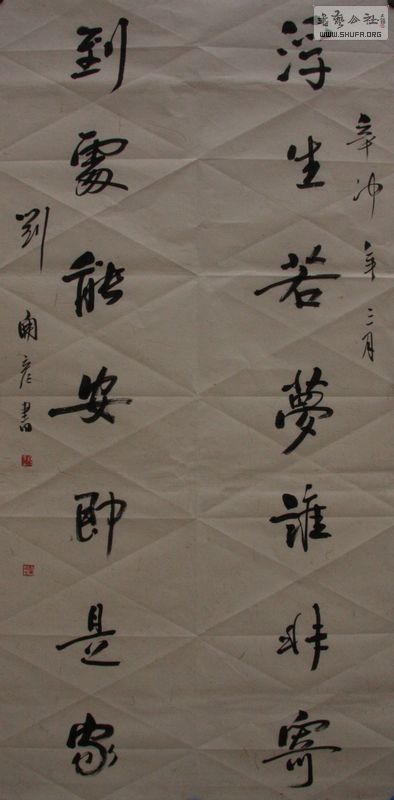 浮生若夢誰非寄
到處能安即是家
辛卯年三月
劉
彦書
書藝公社
WWW.SHUFA.ORG